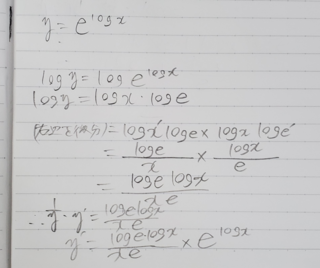 y = e^{log x}
log y = log e^{log x}
log y = log x · log e
= log x' log e × log x log e'
= \frac{log e}{x} × \frac{log x}{e}
= \frac{log e log x}{x e}
∴ \frac{1}{y} · y' = \frac{log e log x}{x e}
y' = \frac{log e log x}{x e} × e^{log x}